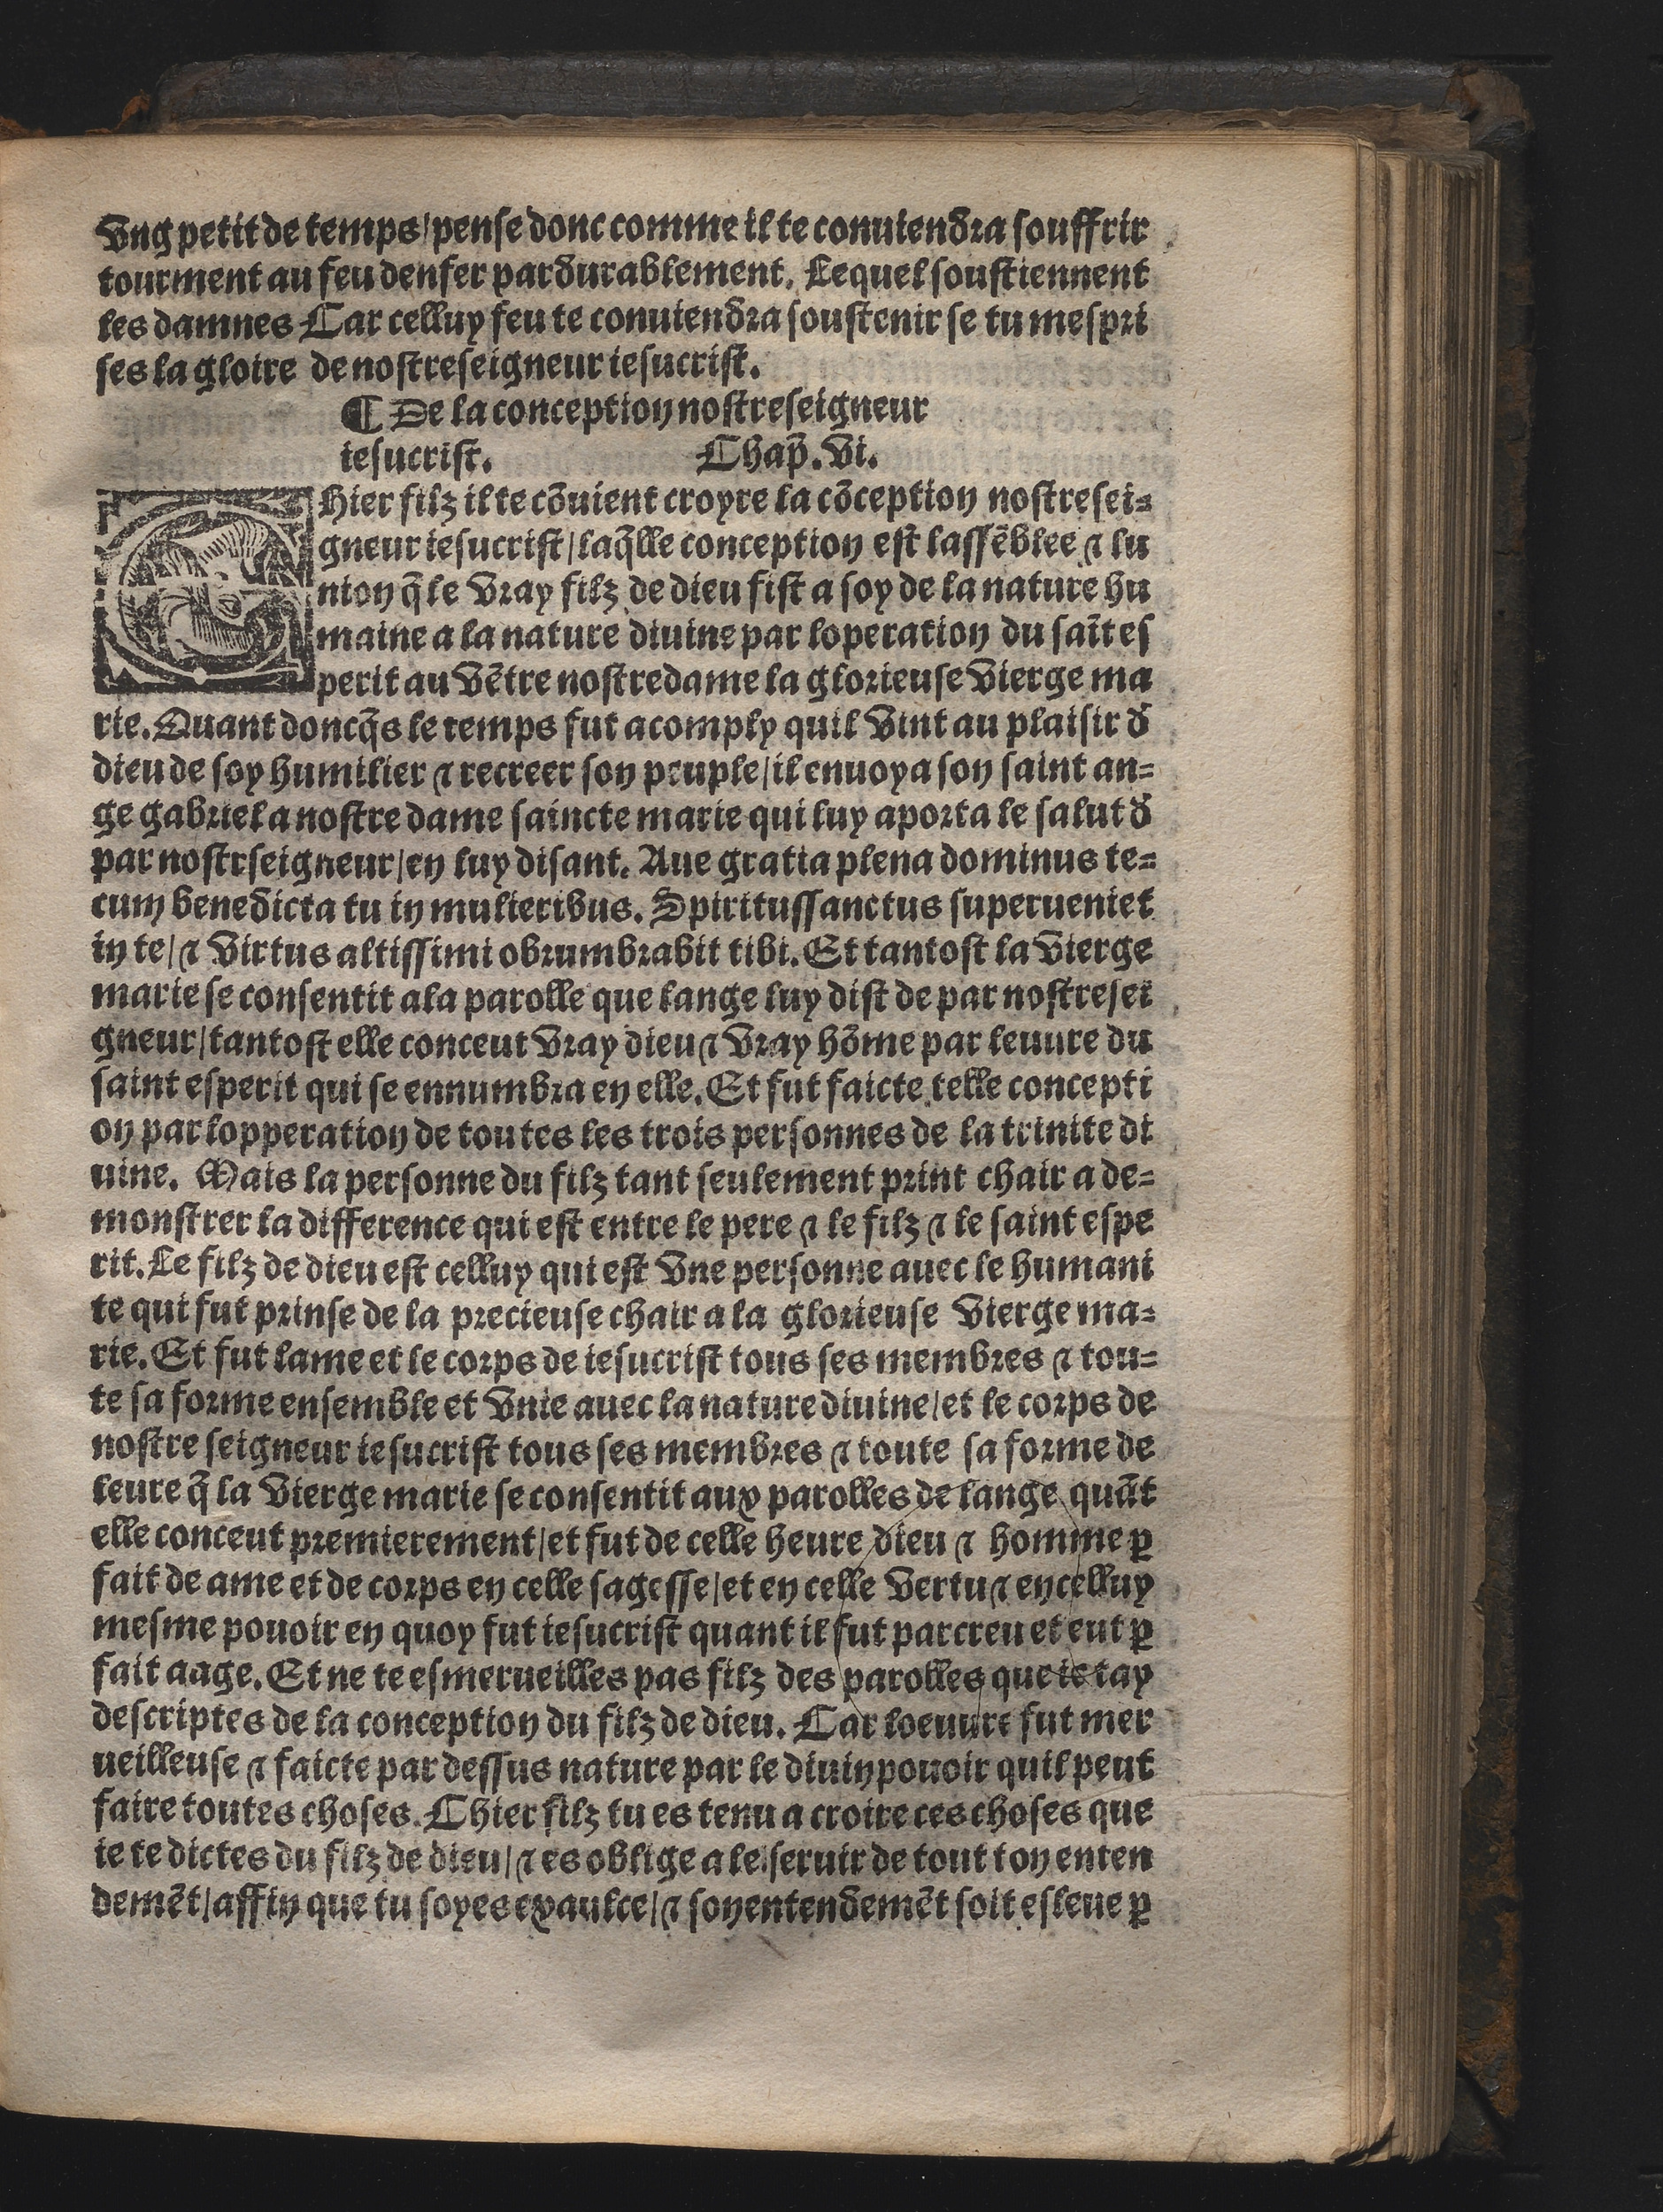 Vng petit de temps/pense donc comme il te conuiendra souffrir
tourment au feu denfer pardurablement. Lequel soustiennent
les damnes Car celluy feu te conuiendra soustenir se tu mespri
ses la gloire de nostreseigneur iesucrist.
¶ De la conception nostreseigneur
iesucrist. Chap̄. vi.
CHier filz il te cōuient croyre la cōception nostresei=
gneur iesucrist/laq̄lle conception est lassēblee ⁊ lu
nion q̄ le vray filz de dieu fist a soy de la nature hu
maine a la nature diuine par loperation du saīt es
perit au vētre nostredame la glorieuse vierge ma
rie. Quant doncq̄s le temps fut acomply quil vint au plaisir d̄
dieu de soy humilier ⁊ recreer son peuple/il enuoya son saint an=
ge gabriel a nostre dame saincte marie qui luy aporta le salut d̄
par nostrseigneur/en luy disant. Aue gratia plena dominus te=
cum benedicta tu in mulieribus. Spiritussanctus superueniet
in te/⁊ virtus altissimi obrumbrabit tibi. Et tantost la vierge
marie se consentit ala parolle que lange luy dist de par nostresei
gneur/tantost elle conceut vray dieu ⁊ vray hōme par leuure du
saint esperit qui se ennumbra en elle. Et fut faicte telle concepti
on par lopperation de toutes les trois personnes de la trinite di
uine. Mais la personne du filz tant seulement print chair a de=
monstrer la difference qui est entre le pere ⁊ le filz ⁊ le saint espe
rit. Le filz de dieu est celluy qui est vne personne auec le humani
te qui fut prinse de la precieuse chair a la glorieuse vierge ma=
rie. Et fut lame et le corps de iesucrist tous ses membres ⁊ tou=
te sa forme ensemble et vnie auec la nature diuine/et le corps de
nostre seigneur iesucrist tous ses membres ⁊ toute sa forme de
leure q̄ la vierge marie se consentit aux parolles de lange quāt
elle conceut premierement/et fut de celle heure dieu ⁊ homme ꝑ
fait de ame et de corps en celle sagesse/et en celle vertu ⁊ en celluy
mesme pouoir en quoy fut iesucrist quant il fut parcreu et eut ꝑ
fait aage. Et ne te esmerueilles pas filz des parolles que ie tay
descriptes de la conception du filz de dieu. Car loeuure fut mer
ueilleuse ⁊ faicte par dessus nature par le diuin pouoir quil peut
faire toutes choses. Chier filz tu es tenu a croire ces choses que
ie te dictes du filz de dieu/⁊ es oblige a le seruir de tout ton enten
demēt/affin que tu soyes expaulce/⁊ son entendemēt soit esleue ꝑ